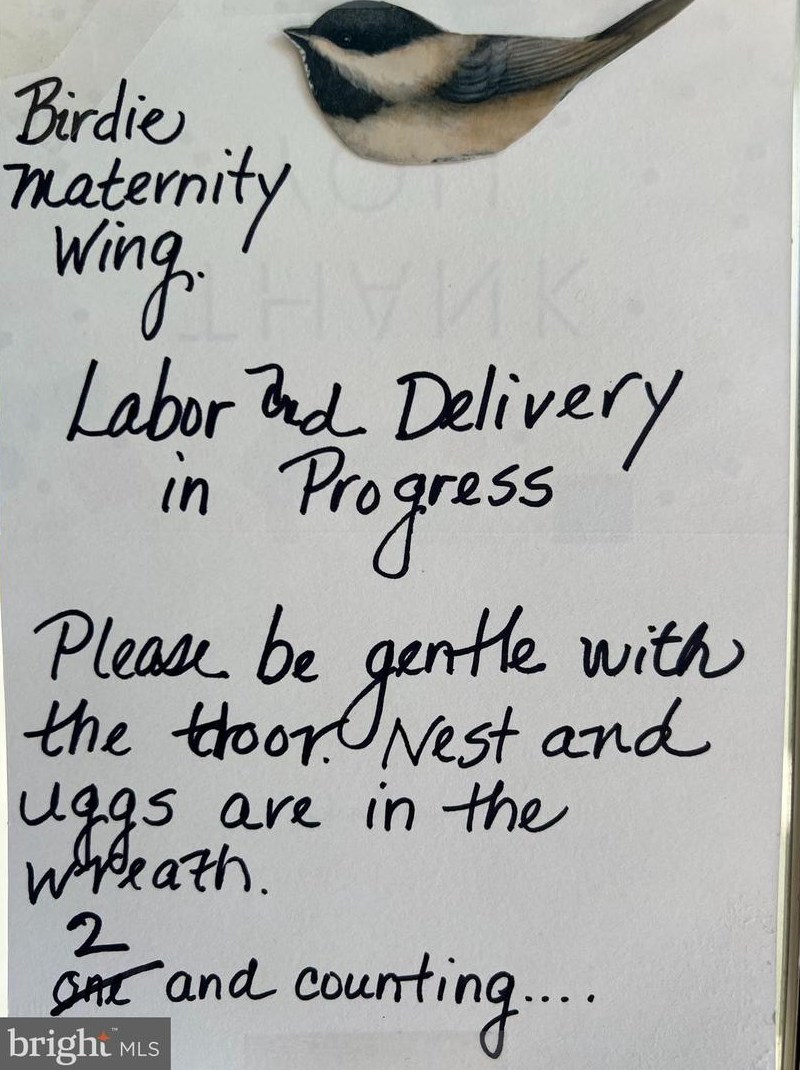 Birdie
maternity
Wing.
YOU
THANK
Labor and Delivery
in Progress
Please be gentle with
the door. Nest and
uggs are in the
wreath.
2
one and counting....
bright™ MLS